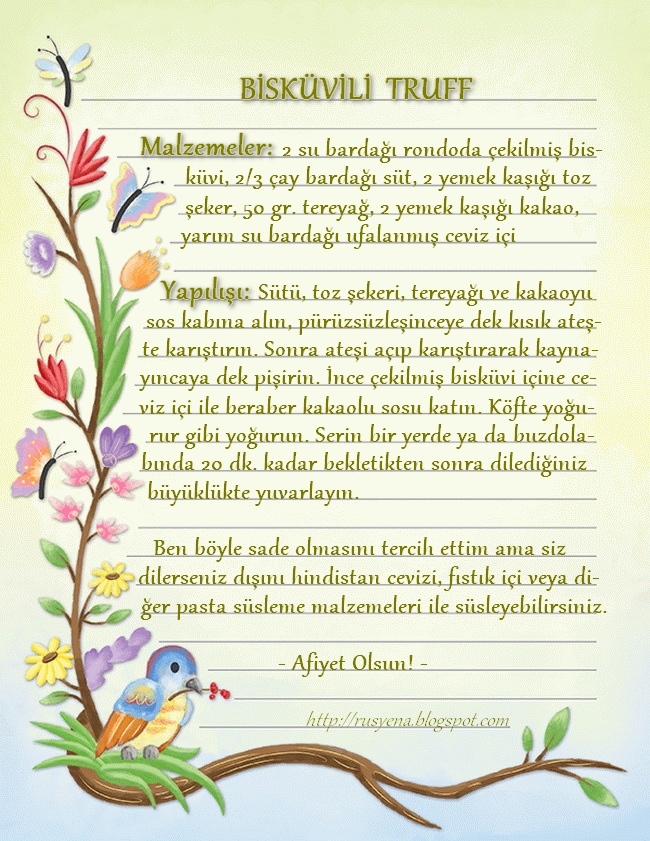 BİSKÜVİLİ TRUFF
Malzemeler: 2 su bardağı rondoda çekilmiş bis-
küvi, 2/3 çay bardağı süt, 2 yemek kaşığı toz
şeker, 50 gr. tereyağ, 2 yemek kaşığı kakao,
yarım su bardağı ufalanmış ceviz içi
Yapılışı: Sütü, toz şekeri, tereyağı ve kakaoyu
sos kabına alın, pürüzsüzleşinceye dek kısık ateş-
te karıştırın. Sonra ateşi açıp karıştırarak kayna-
yıncaya dek pişirin. İnce çekilmiş bisküvi içine ce-
viz içi ile beraber kakaolu sosu katın. Köfte yoğu-
rur gibi yoğurun. Serin bir yerde ya da buzdola-
bında 20 dk. kadar beklettikten sonra dilediğiniz
büyüklükte yuvarlayın.
Ben böyle sade olmasını tercih ettim ama siz
dilerseniz dışını hindistan cevizi, fıstık içi veya di-
ğer pasta süsleme malzemeleri ile süsleyebilirsiniz.
- Afiyet Olsun! -
http://rusyena.blogspot.com